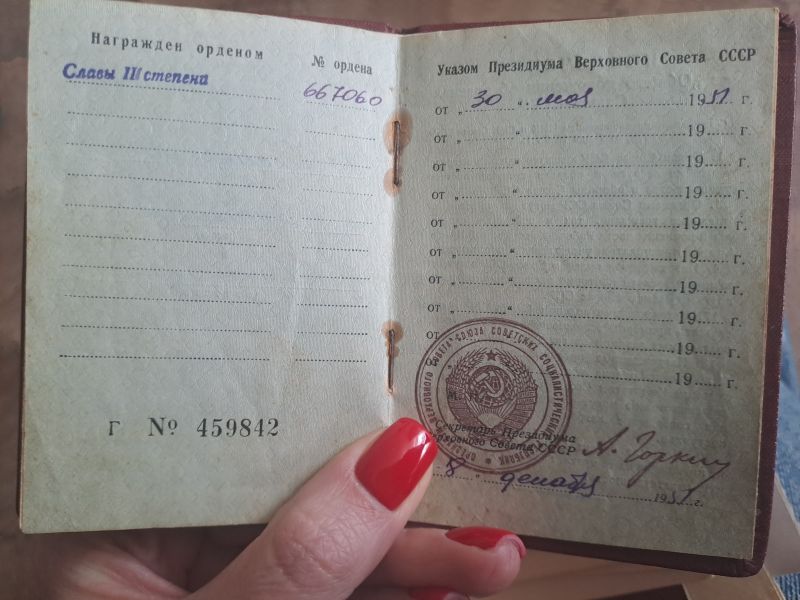 Награжден орденом
№ ордена
Славы III степени
667060
Г № 459842
Указом Президиума Верховного Совета СССР
от „ 30 “ мая 1951 г.
от „ “ 19 г.
от „ “ 19 г.
от „ “ 19 г.
от „ “ 19 г.
от „ “ 19 г.
от „ “ 19 г.
от „ “ 19 г.
от 19 г.
19 г.
М.
Секретарь Президиума
Верховного Совета СССР
А. Горкин
8 “ декабря 1951 г.
ВЕРХОВНОГО СОВЕТА СОЮЗА СОВЕТСКИХ СОЦИАЛИСТИЧЕСКИХ